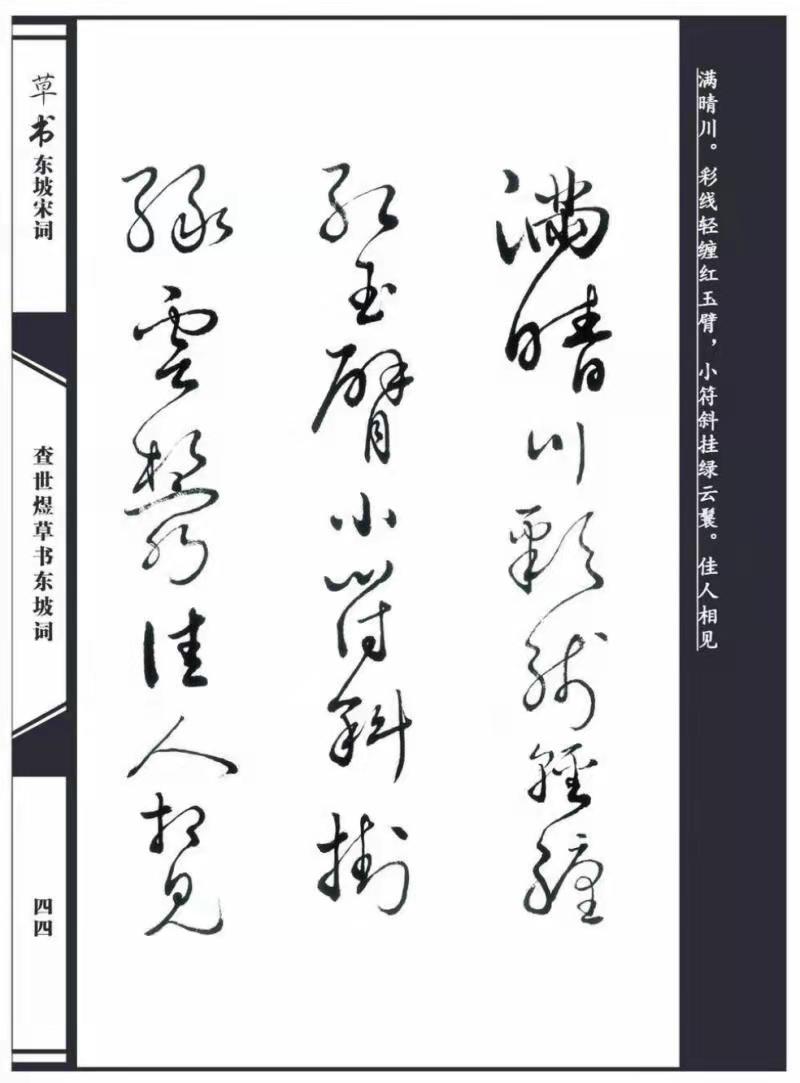 满晴川。彩线轻缠红玉臂，小符斜挂绿云鬟。佳人相见
满晴川彩线轻缠
红玉臂小符斜掛
绿雲鬟佳人相见
草书东坡宋词
查世煜草书东坡词
四四